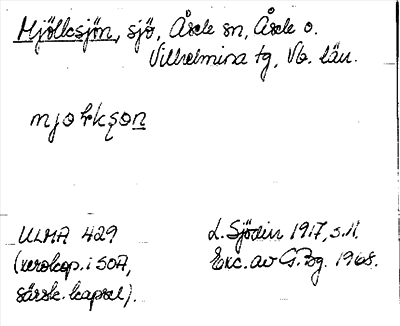 Mjölksjön, sjö, Åsele sn, Åsele o.
Vilhelmina tg, Vb. län.
mjolkson
ULMA 429
(xerokop. i SOA,
särsk. kapsel).
L. Sjödin 1917, s. 11.
Exc. av G. Bog. 1968.